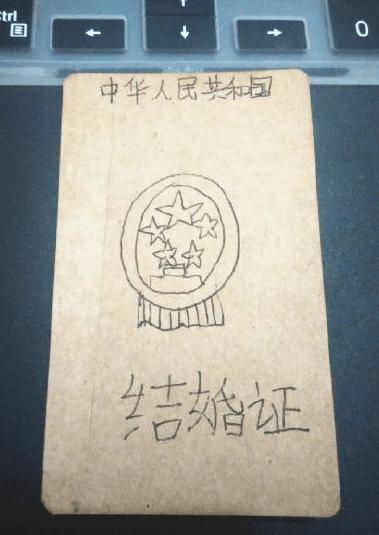 Ctrl
0
中华人民共和国
结婚证